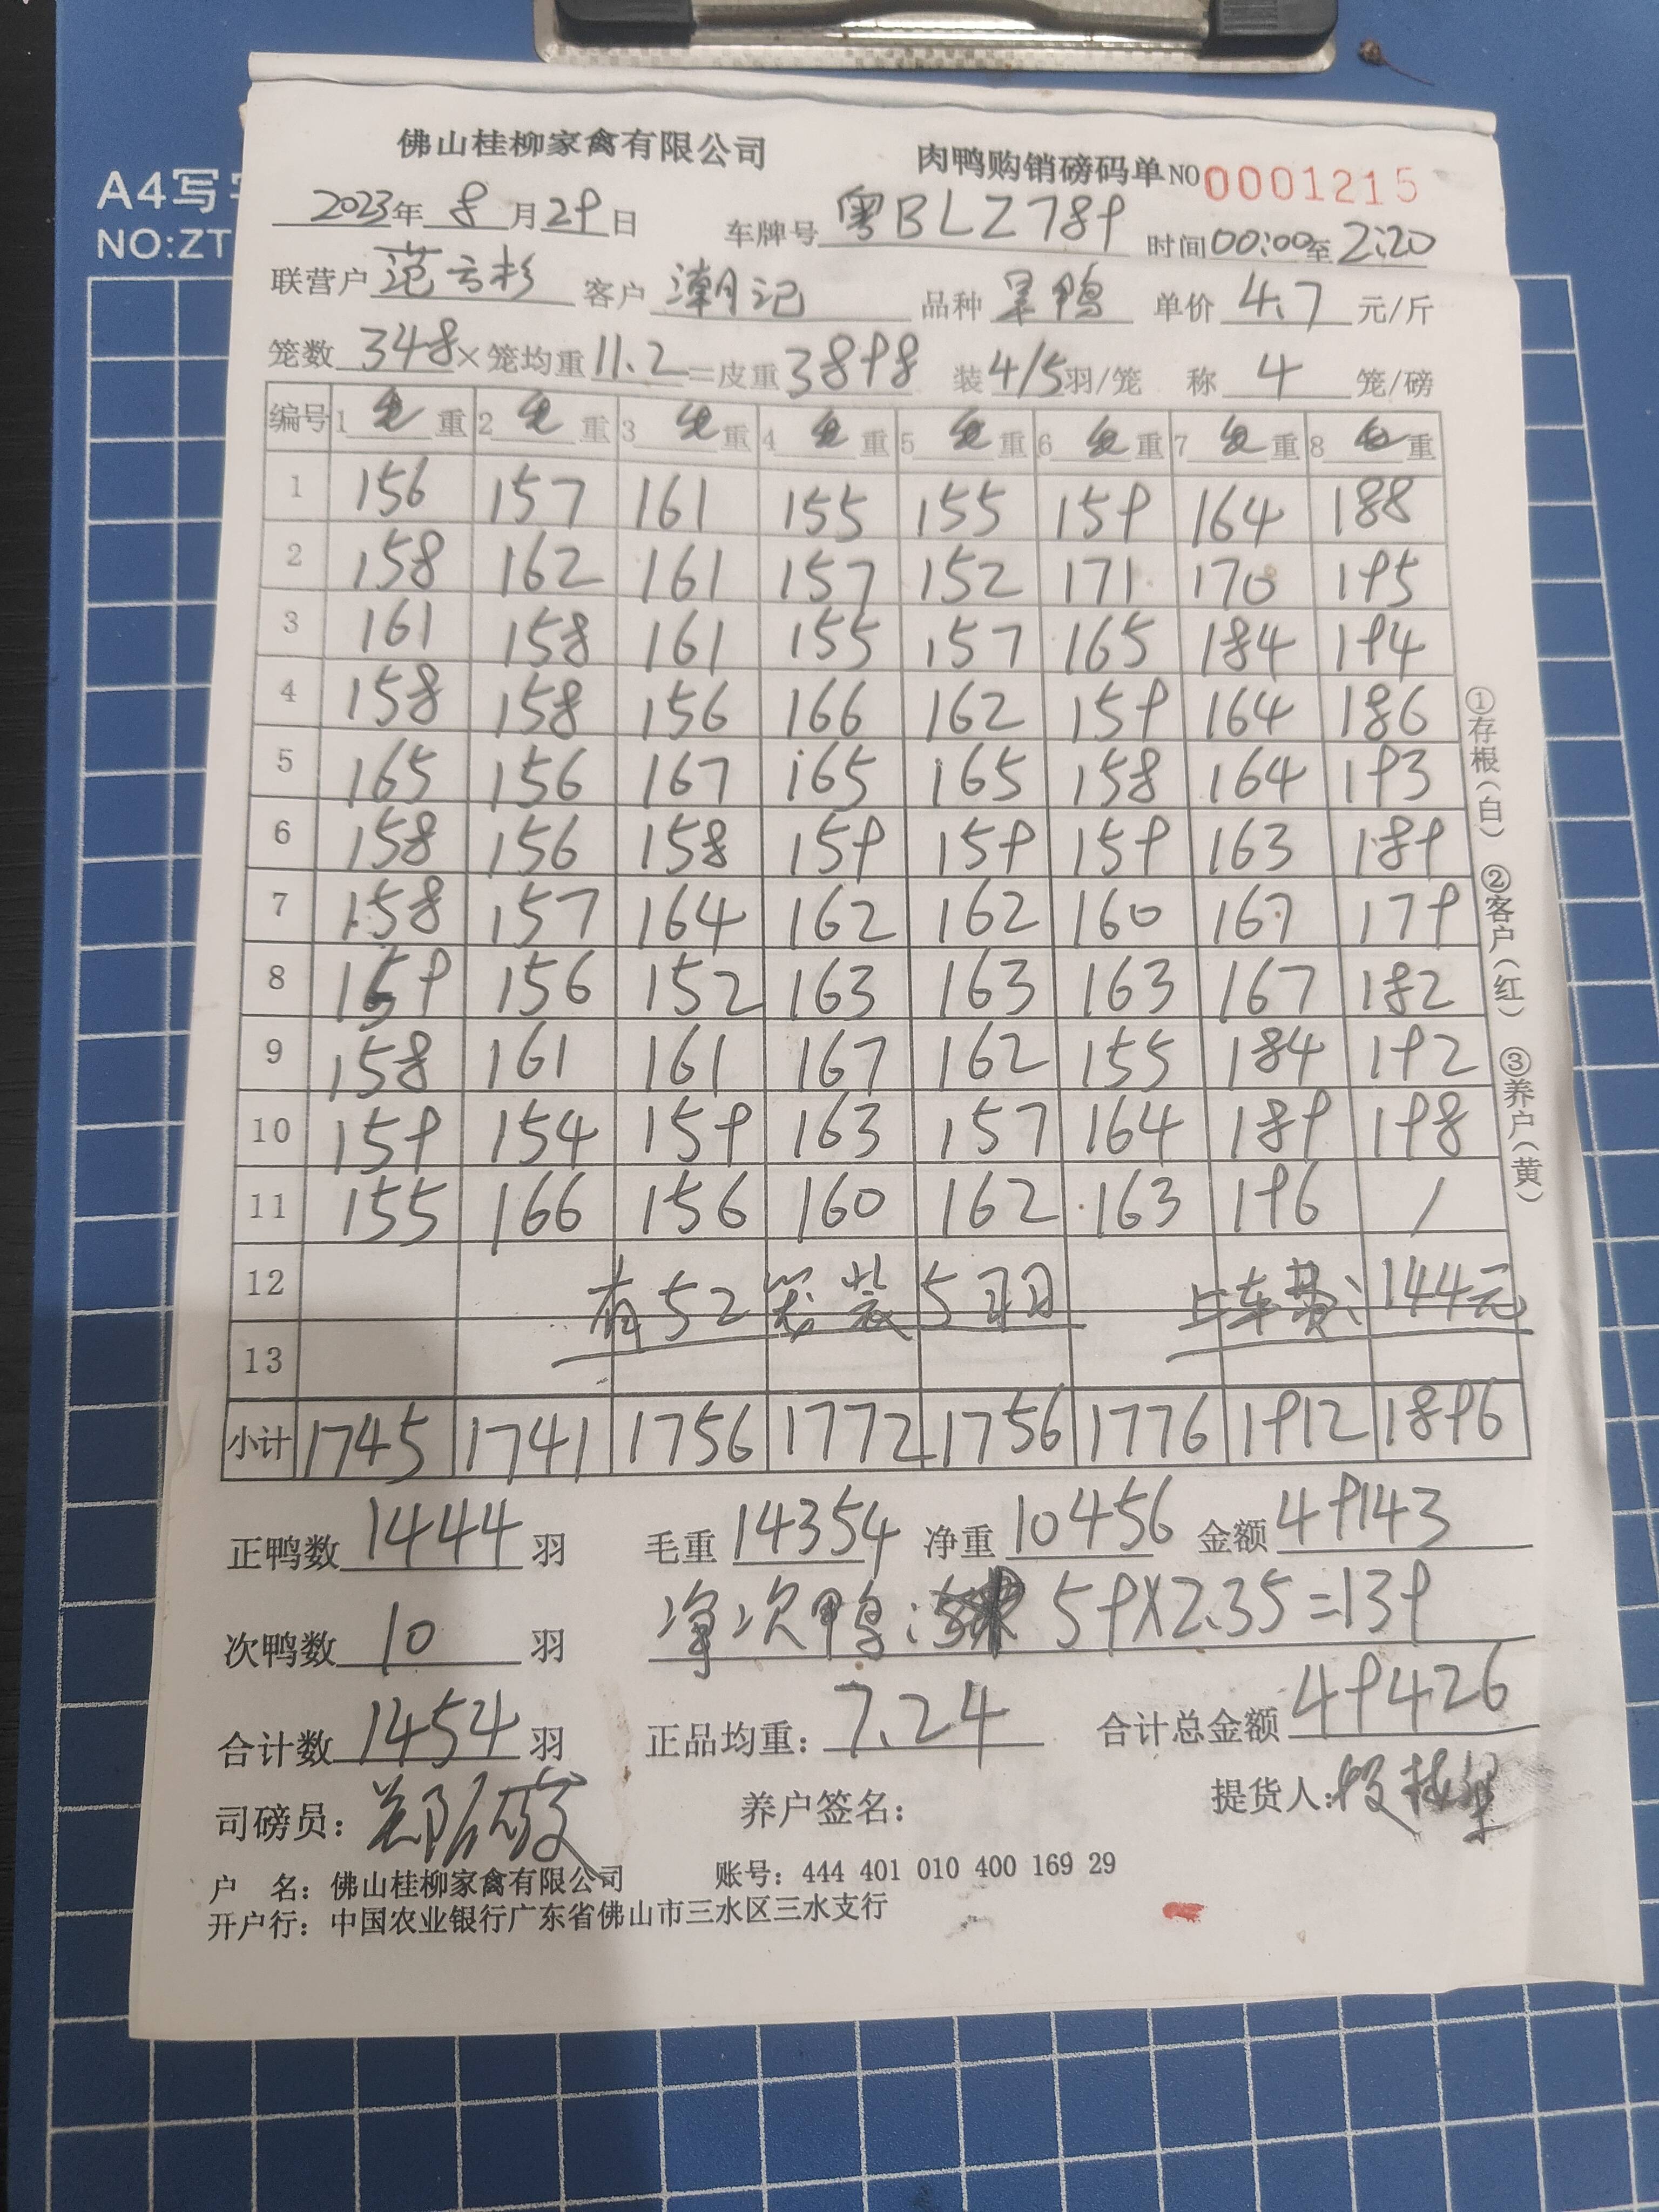 A4写
NO:ZT
佛山桂柳家禽有限公司 肉鸭购销磅码单 NO 0001215
2023年 8 月 29 日 车牌号 粤BLZ789 时间 00:00 至 2:20
联营户 范方杉 客户 潮记 品种 呆鸭 单价 4.7 元/斤
笼数 348 × 笼均重 11.2 = 皮重 3898 装 4/5 羽/笼 称 4 笼/磅
编号 1 重 2 重 3 重 4 重 5 重 6 重 7 重 8 重
1 156 157 161 155 155 159 164 188
2 158 162 161 157 152 171 170 195
3 161 158 161 155 157 165 184 194
4 158 158 156 166 162 159 164 186
5 165 156 167 165 165 158 164 193
6 158 156 158 159 159 159 163 189
7 158 157 164 162 162 160 167 179
8 159 156 152 163 163 163 167 182
9 158 161 161 167 162 155 184 192
10 159 154 159 163 157 164 189 198
11 155 166 156 160 162 163 196 /
12 有52笼装5羽 上车费:144元
13
小计 1745 1741 1756 1772 1756 1776 1912 1896
正鸭数 1444 羽 毛重 14354 净重 10456 金额 49143
次鸭数 10 羽 净次鸭: 59X2.35=139
合计数 1454 羽 正品均重: 7.24 合计总金额 49426
司磅员: 养户签名: 提货人:
户 名: 佛山桂柳家禽有限公司 账号: 444 401 010 400 169 29
开户行: 中国农业银行广东省佛山市三水区三水支行
①存根(白) ②客户(红) ③养户(黄)